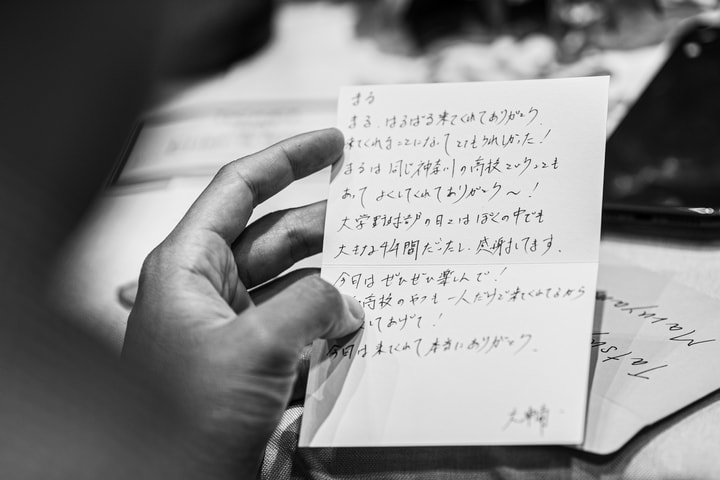 まる
まる、はるばる来てくれてありがとう。
来てくれることになってとてもうれしかった!
まるは同じ神奈川の高校ということも
あって よくしてくれてありがとう〜!
大学野球部の日々はぼくの中でも
大切な4年間だったし、感謝してます。
今日はぜひぜひ楽しんで!
高校のやつも一人だけで来てくれてるから
してあげて!
今日は来てくれて本当にありがとう。
Maruyama